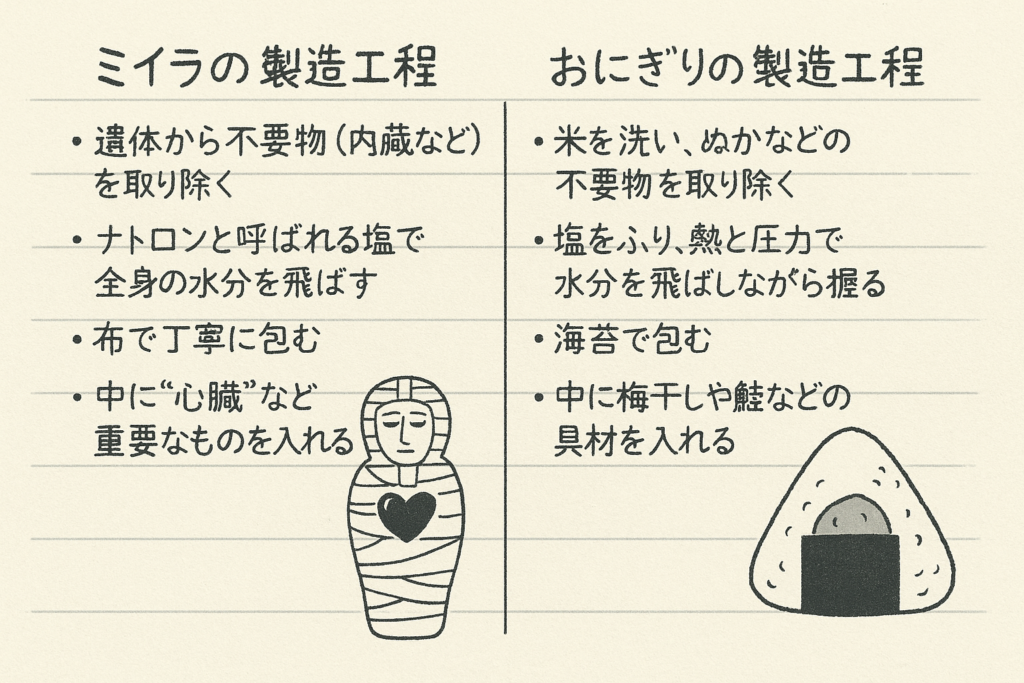 ミイラの製造工程
・遺体から不要物(内蔵など)
を取り除く
・ナトロンと呼ばれる塩で
全身の水分を飛ばす
・布で丁寧に包む
・中に“心臓”など
重要なものを入れる
おにぎりの製造工程
・米を洗い、ぬかなどの
不要物を取り除く
・塩をふり、熱と圧力で
水分を飛ばしながら握る
・海苔で包む
・中に梅干しや鮭などの
具材を入れる